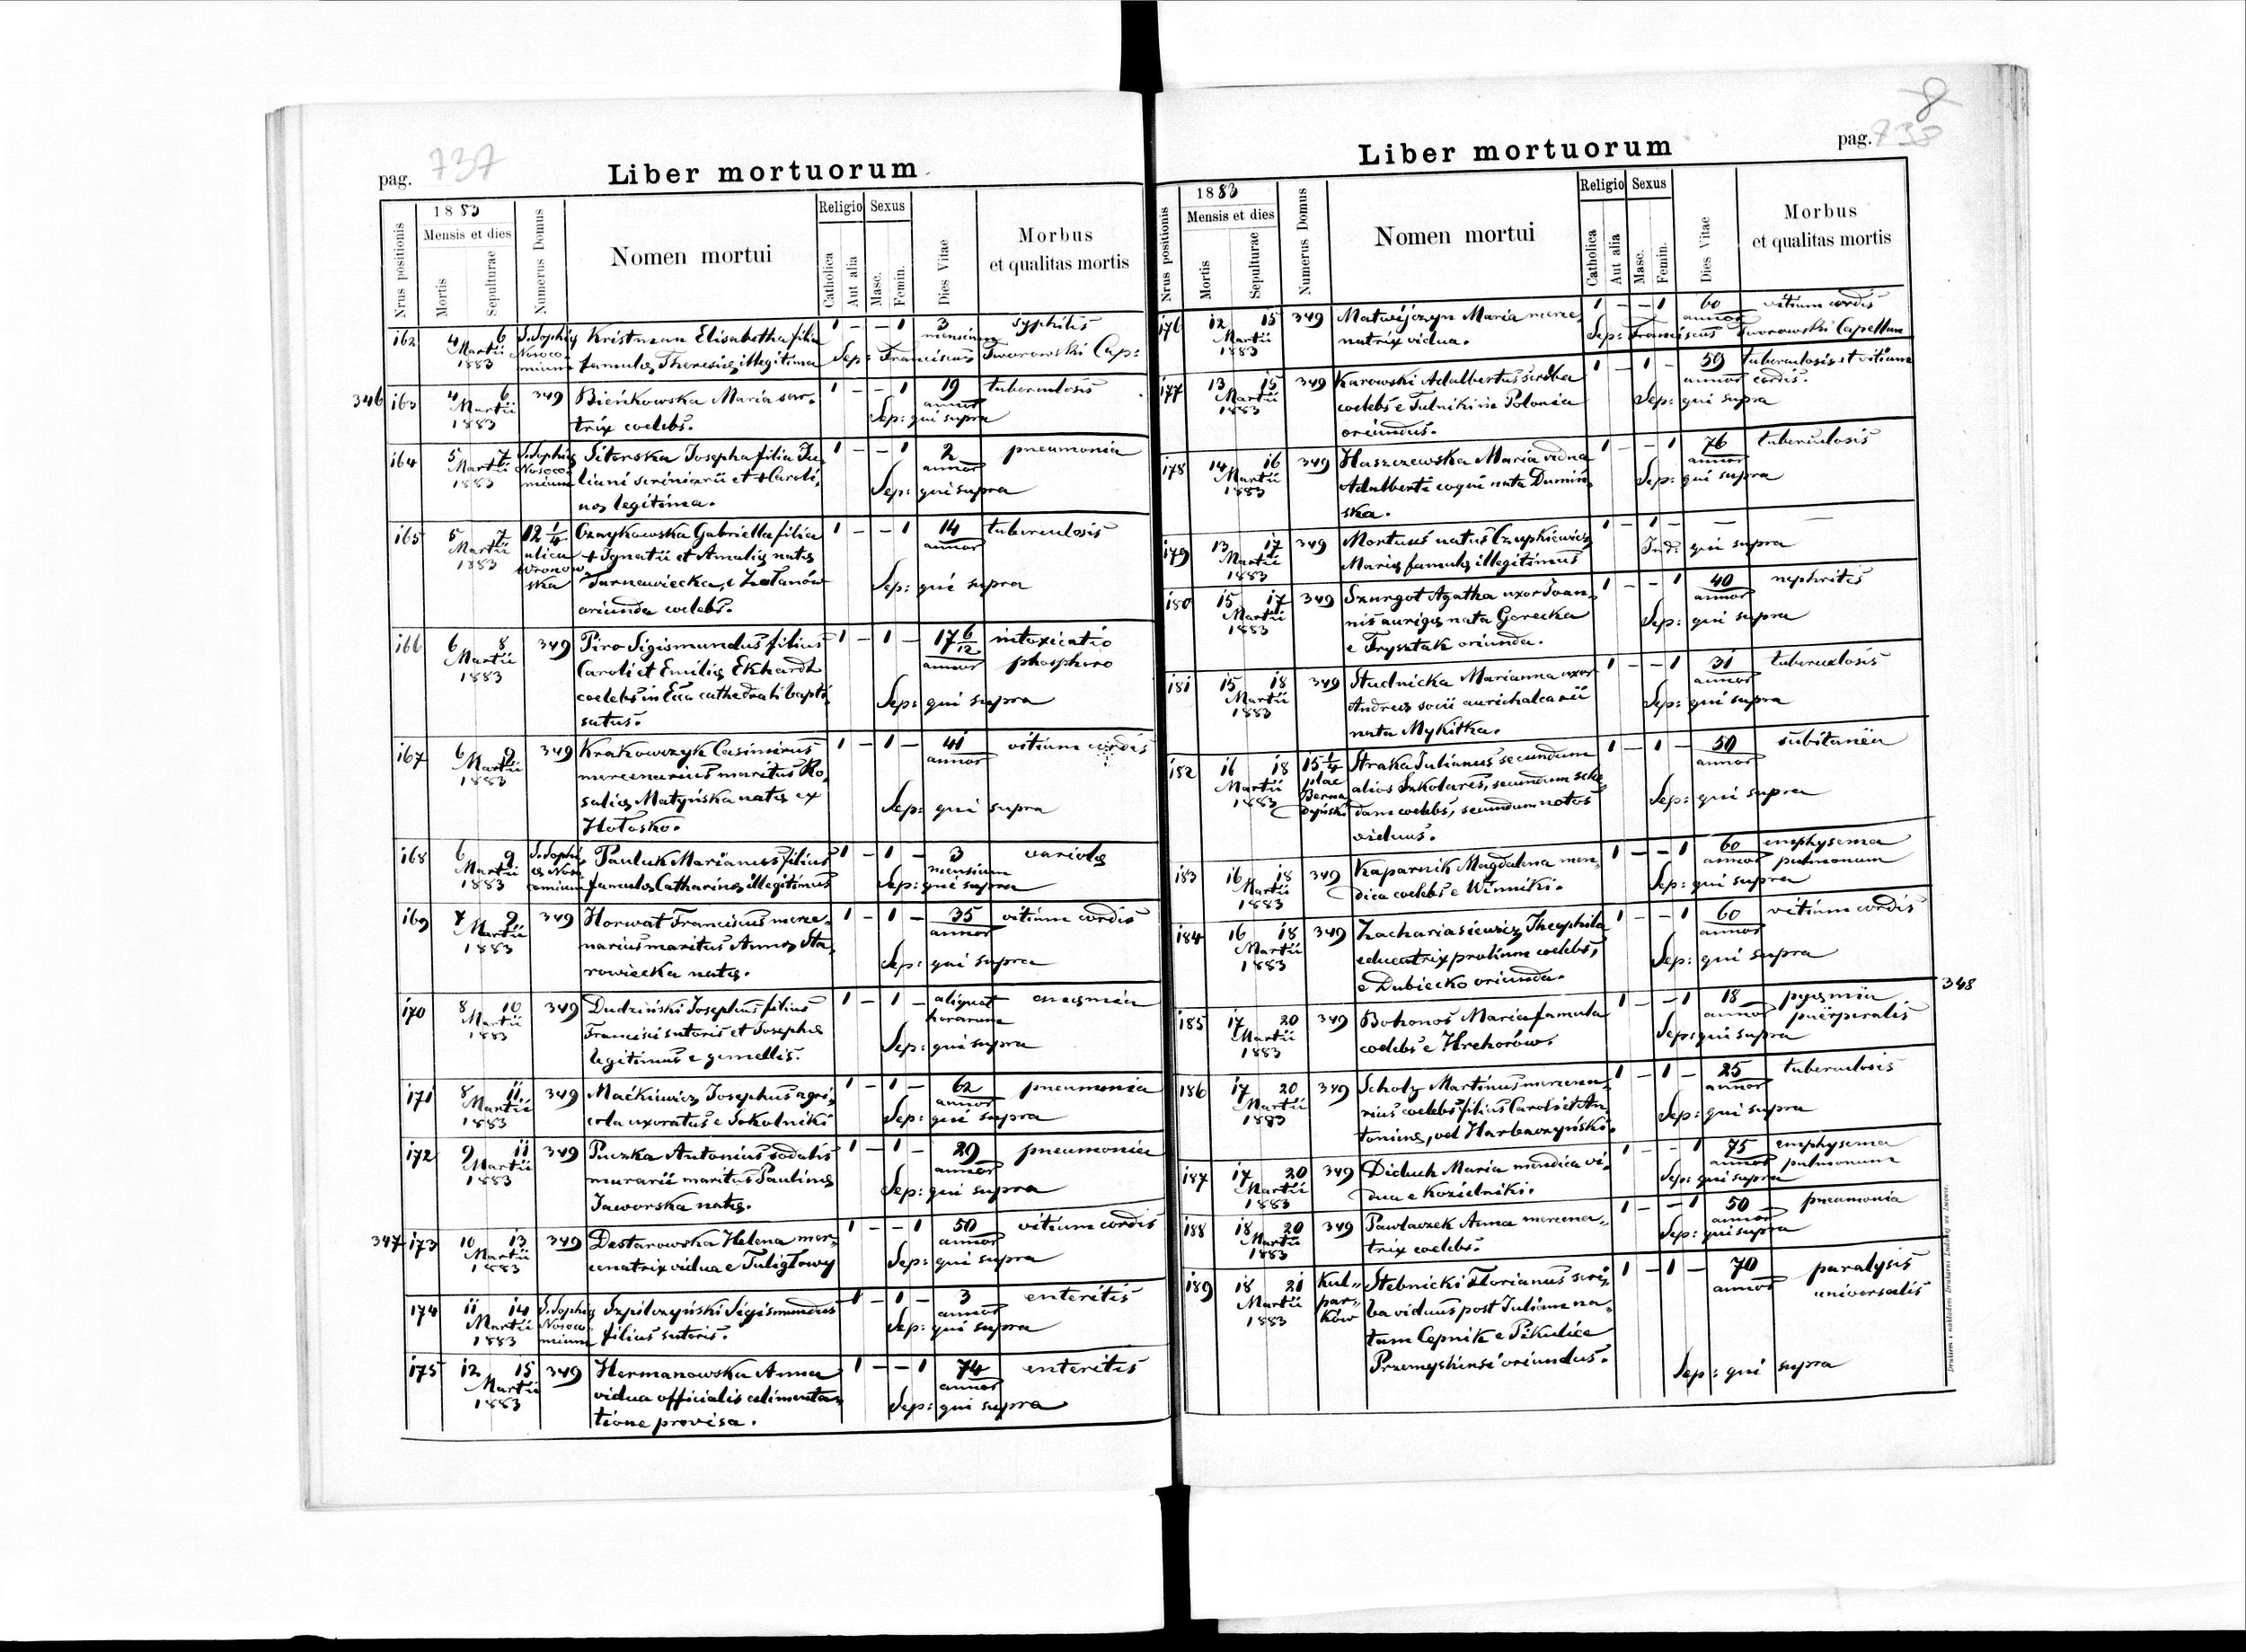 pag. 737
Liber mortuorum
Nrus positionis
1883
Mensis et dies
Mortis
Sepulturae
Numerus Domus
Nomen mortui
Religio
Catholica
Aut alia
Sexus
Masc.
Femin.
Dies Vitae
Morbus
et qualitas mortis
162 4 6 S. Sophię Kristman Elisabetha filia 1 – – 1 3 syphilis
Martii Nosoco- mensium
1883 mium famulę Theresię illegitima Sep: Franciscus Tworowski Cap:
346 163 4 6 349 Bieńkowska Maria sar- 1 – – 1 19 tuberculosis
Martii annor
1883 trix coelebs. Sep: qui supra
164 5 7 S. Sophię Josepha filia Ju- 1 – – 1 2 pneumonia
Martii Nosoco- liani et + Caroli- annor
1883 mium nę legitima. Sep: qui supra
165 5 7 12 1/4 Gabriella filia 1 – – 1 14 tuberculosis
Martii ulica + Ignatii et Amalię natę annor
1883 Wronow
ska Tarnawiecka, e oriunda coelebs. Sep: qui supra
166 6 8 349 Piro Sigismundus filius 1 – 1 – 17 6/12 intoxicatio
Martii Caroli et Emilię Ekhardt annor phosphoro
1883 coelebs in Ecca cathedrali bapti-
satus. Sep: qui supra
167 6 9 349 Krakowczyk Casimirus 1 – 1 – 41 vitium cordis
Martii mercenarius maritus Ro- annor
1883 salię Matyńska natę ex
Hołosko. Sep: qui supra
168 6 9 S. Sophi- Pauluk Marianus filius 1 – 1 – 3 variolę
Martii ę Noso- mensium
1883 comium famulę Catharinę illegitimus Sep: qui supra
169 7 9 349 Horwat Franciscus merce- 1 – 1 – 35 vitium cordis
Martii narius maritus Annę Sta- annor
1883 rowiecka natę. Sep: qui supra
170 8 10 349 Dudziński Josephus filius 1 – 1 – aliquot
Martii Francisci sutoris et Josephę horarum
1883 legitimus e gemellis. Sep: qui supra
171 8 11 349 Maćkiewicz Josephus agri- 1 – 1 – 62 pneumonia
Martii annor
1883 cola uxoratus e Sokolniki Sep: qui supra
172 9 11 349 Puczka Antonius sodalis 1 – 1 – 29 pneumonia
Martii murarii maritus Paulinę annor
1883 Jaworska natę. Sep: qui supra
347 173 10 13 349 Destarowska Helena mer- 1 – – 1 50 vitium cordis
Martii annor
1883 cenatrix vidua e Tuligłowy Sep: qui supra
174 11 14 S. Sophię Szpilczyński Sigismundus 1 – 1 – 3 enteritis
Martii Nosoco- annor
1883 mium filius sutoris. Sep: qui supra
175 12 15 349 Hermanowska Anna 1 – – 1 74 enteritis
Martii vidua officialis alimenta- annor
1883 tione provisa. Sep: qui supra
8
Liber mortuorum
pag. 738
Nrus positionis
1883
Mensis et dies
Mortis
Sepulturae
Numerus Domus
Nomen mortui
Religio
Catholica
Aut alia
Sexus
Masc.
Femin.
Dies Vitae
Morbus
et qualitas mortis
176 12 15 349 Matwijczyn Maria merce- 1 – – 1 60 vitium cordis
Martii annor
1883 natrix vidua. Sep: Franciscus Tworowski Capellan
177 13 15 349 Karowski Adalbertus scriba 1 – 1 – 59 tuberculosis et vitium
Martii coelebs e in Polonia annor cordis.
1883 oriundus. Sep: qui supra
178 14 16 349 Haszczewska Maria vidua 1 – – 1 76 tuberculosis
Martii Adalberti coqui nata Dumiń- annor
1883 ska. Sep: qui supra
179 13 17 349 Mortuus natus Czupkiewicz 1 – 1 – – –
Martii
1883 Marię famulę illegitimus Ind: qui supra
180 15 17 349 Szurgot Agatha uxor Joan- 1 – – 1 40 nephritis
Martii nis aurigę nata Gorecka annor
1883 e Frysztak oriunda. Sep: qui supra
181 15 18 349 Studnicka Marianna uxor 1 – – 1 31 tuberculosis
Martii Andreę socii aurichalcarii annor
1883 nata Mykitka. Sep: qui supra
182 16 18 15 1/4 Straka Julianus secundum 1 – 1 – 50 subitanea
Martii plac alios Szkolares, secundum sche- annor
1883 Berna
dyński dam coelebs, secundum notos
viduus. Sep: qui supra
183 16 18 349 Kaparnik Magdalena men- 1 – – 1 60 emphysema
Martii annor pulmonum
1883 dica coelebs e Winniki. Sep: qui supra
184 16 18 349 Zachariasiewicz Theophila 1 – – 1 60 vitium cordis
Martii educatrix prolium coelebs, annor
1883 e Dubiecko oriunda. Sep: qui supra
348
185 17 20 349 Bohonos Maria famula 1 – – 1 18 pyęmia
Martii annor puerperalis
1883 coelebs e Hrehorów. Sep: qui supra
186 17 20 349 Scholz Martinus mercena- 1 – 1 – 25 tuberculosis
Martii rius coelebs filius Caroli et An- annor
1883 toninę, vel Harbaczyński. Sep: qui supra
187 17 20 349 Diduch Maria mendica vi- 1 – – 1 75 emphysema
Martii annor pulmonum
1883 dua e Kozielniki. Sep: qui supra
188 18 20 349 Pawlaczek Anna mercena- 1 – – 1 50 pneumonia
Martii annor
1883 trix coelebs. Sep: qui supra
189 18 21 Kul- Stebnicki Florianus scri- 1 – 1 – 70 paralysis
Martii par- ba viduus post Juliam na- annor universalis
1883 ków tam Cepnik e Pikulice
Przemysliensi oriundus. Sep: qui supra
Drukiem i nakładem Drukarni Ludowej we Lwowie.